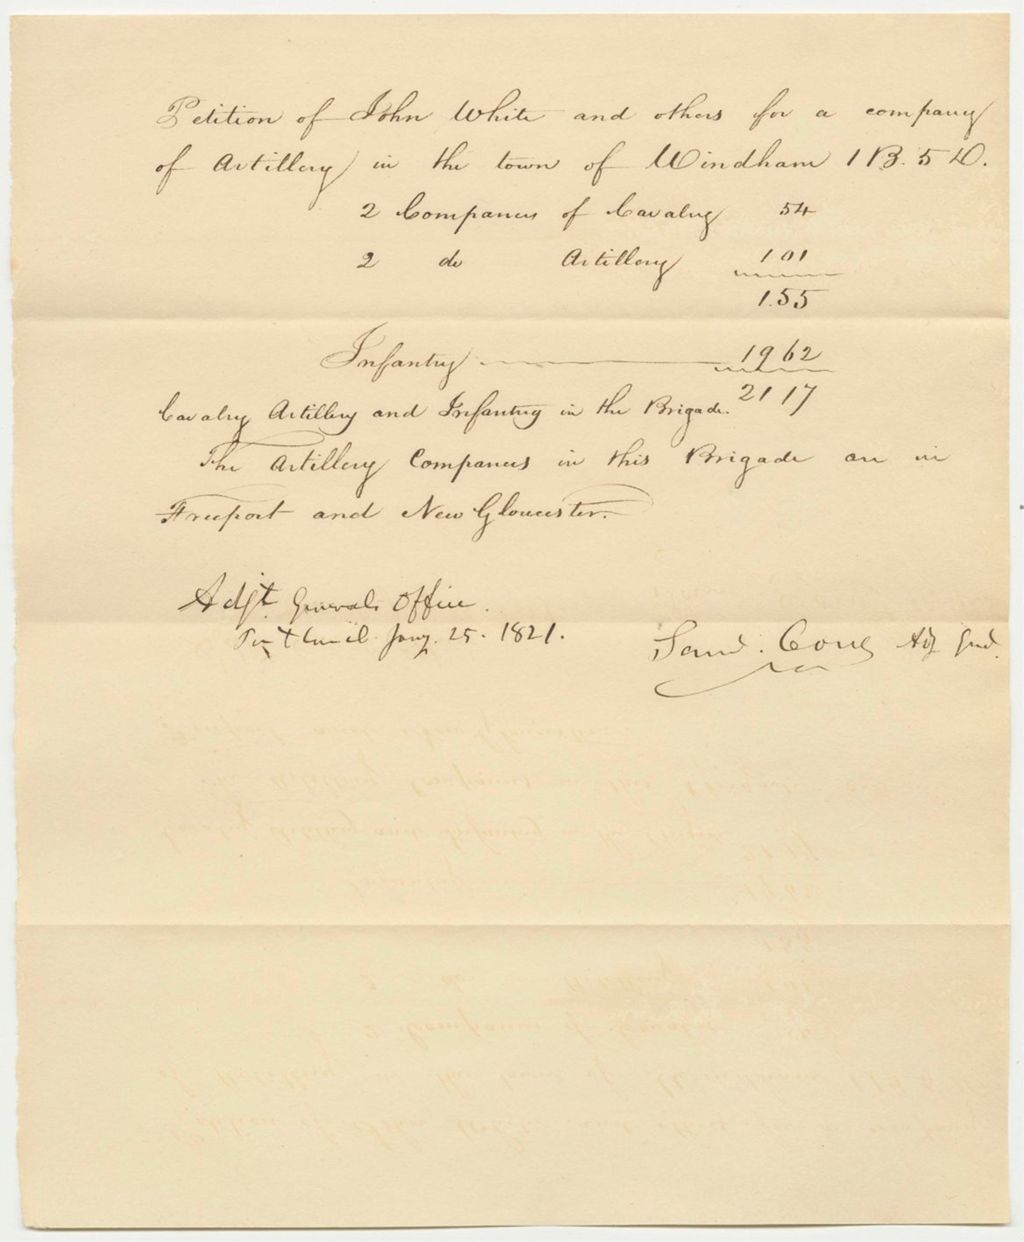 Petition of John White and others for a company
of Artillery in the town of Windham 1 B. 5 D.
2 Companies of Cavalry 54
2 do Artillery 101
155
Infantry 1962
2117
Cavalry Artillery and Infantry in the Brigade.
The Artillery Companies in this Brigade are in
Freeport and New Gloucester.
Adjt Generals Office.
Portland Jany. 25. 1821.
Saml. Cony Adj Genl.